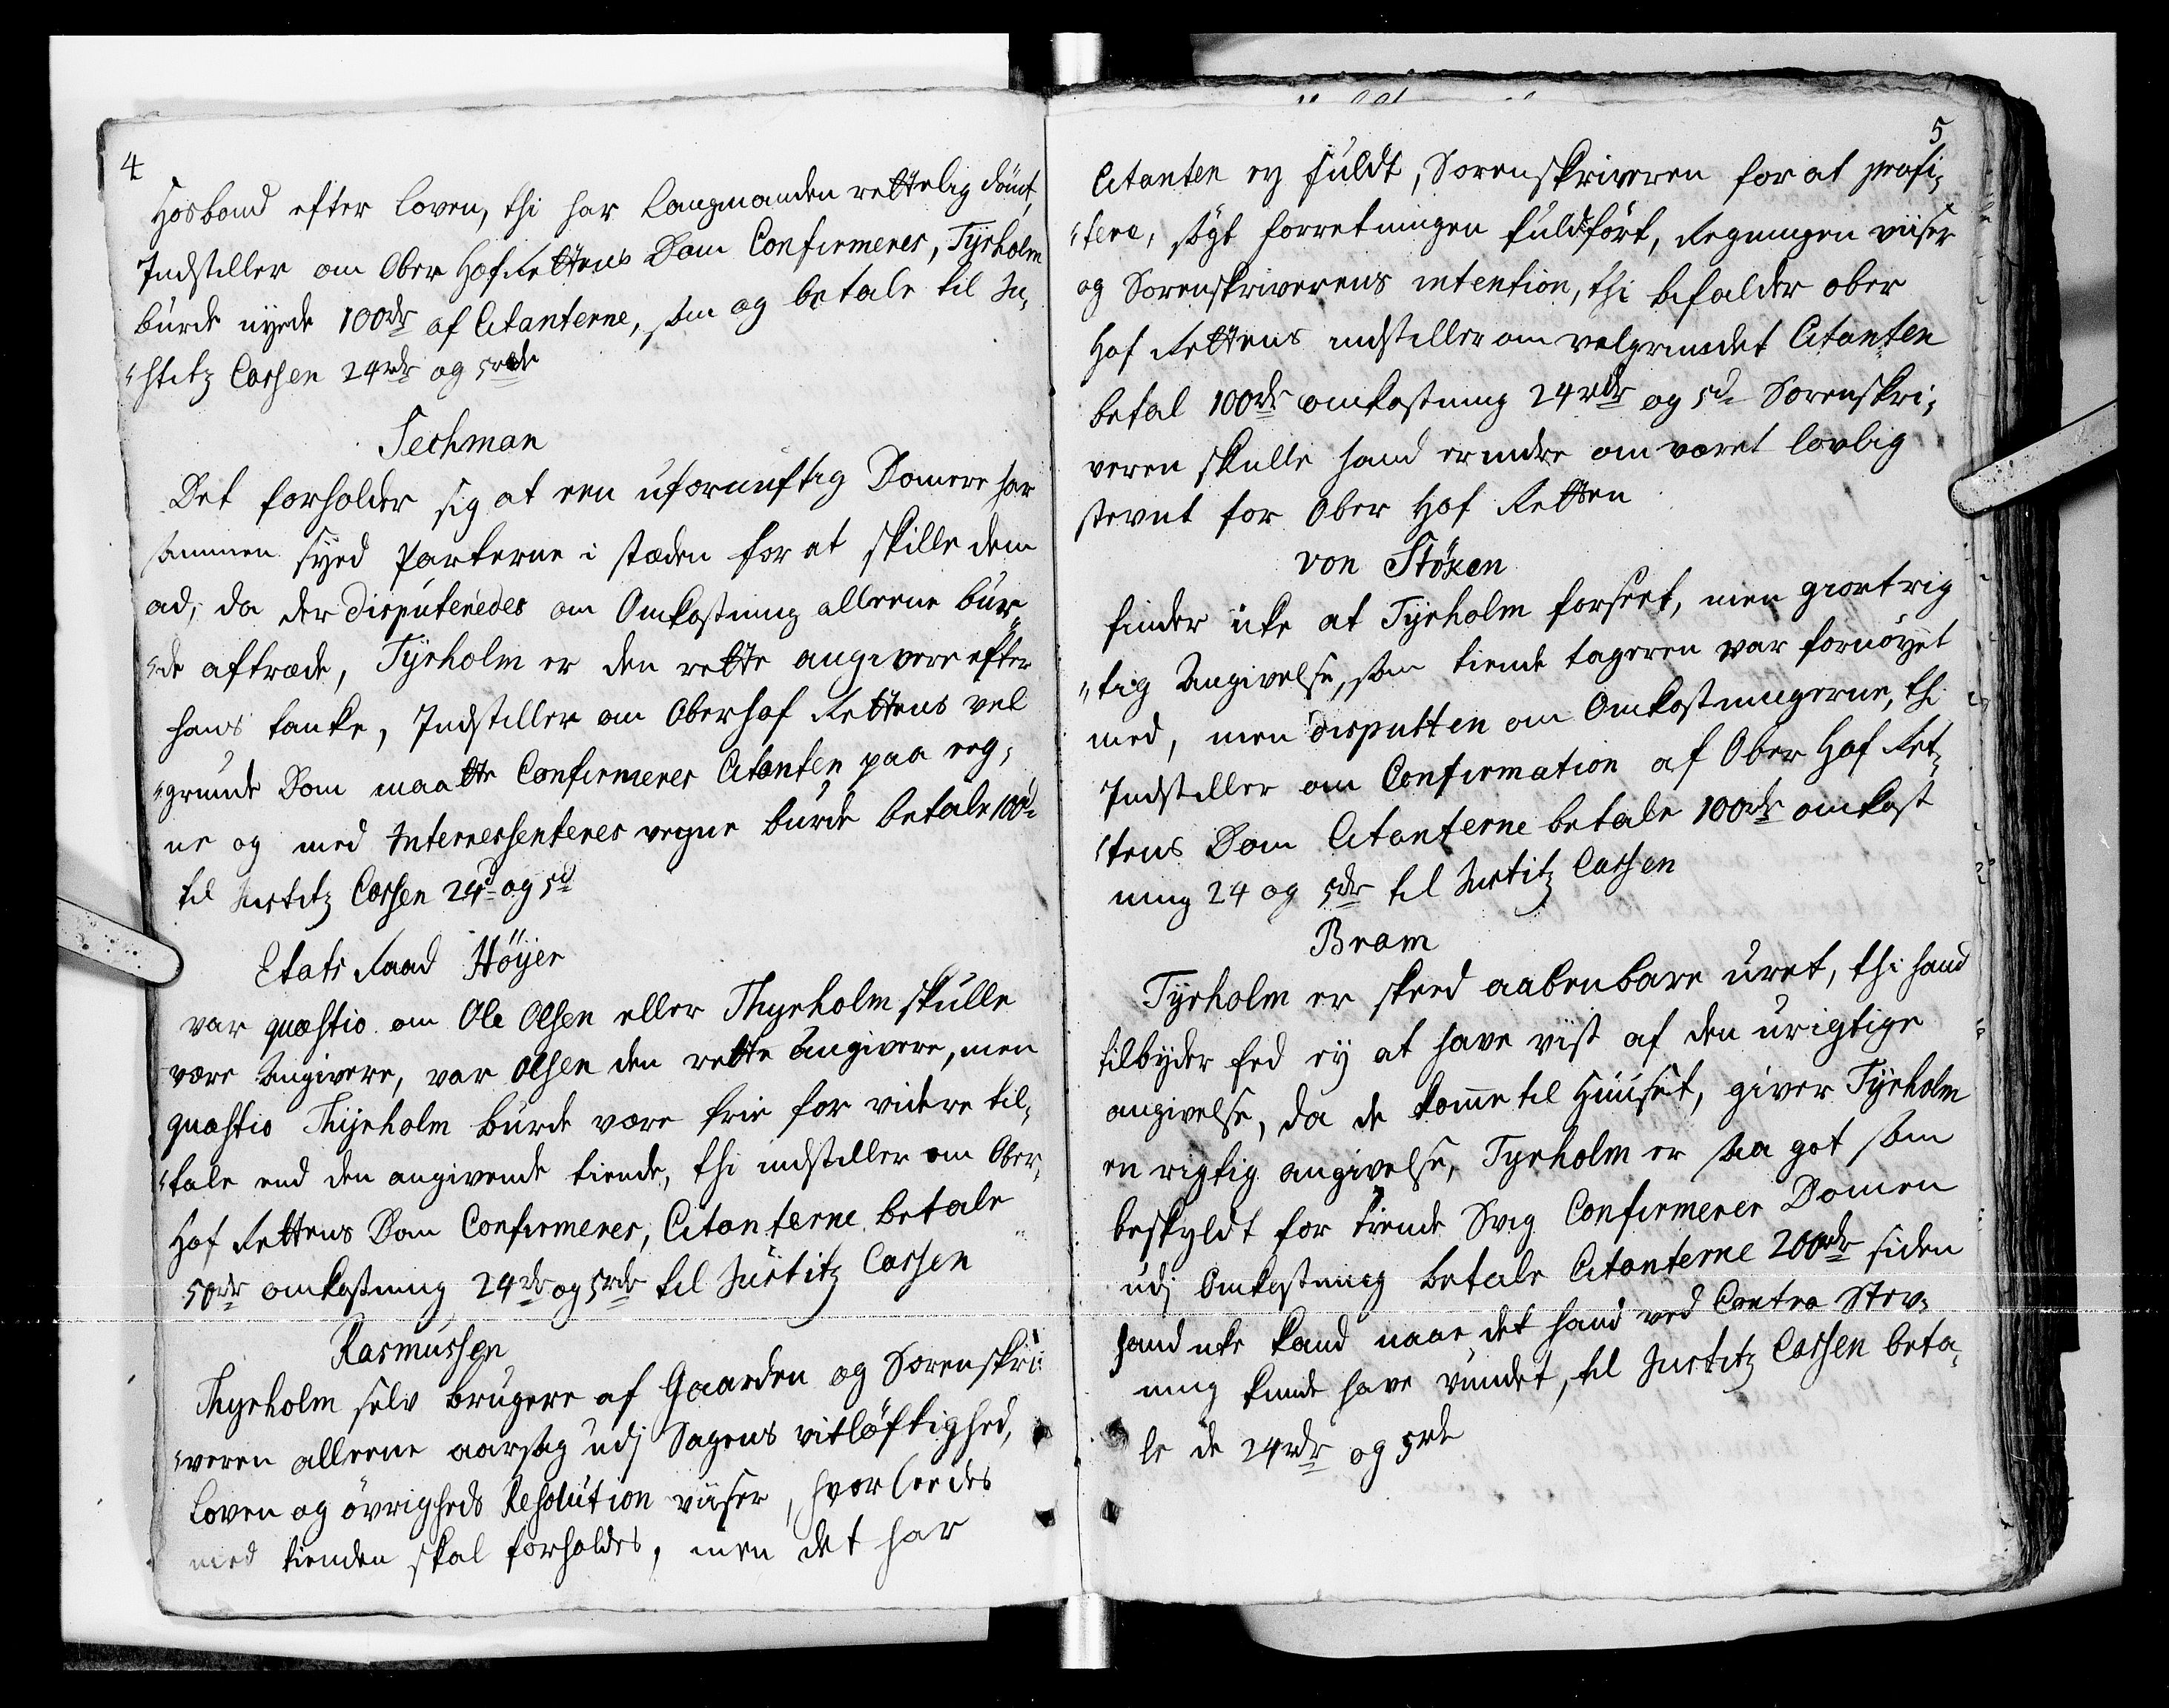 4
Hosbond efter Loven, thi har Laugmanden rettelig dömt,
Indstiller om Ober Hof Rettens Dom Confirmeres, Tyrholm
burde nyede 100rdr af Citanterne, som og betale til Ju-
stitz Cassen 24rdr og 5rdr
Techman
Det forholder sig at een ufornuftig Domere har
sammen syed Parterne i stæden for at skille dem
ad, da der disputeredes om Omkostning alleene bur-
de aftræde, Tyrholm er den rette angivere efter
hans tanke, Indstiller om Oberhof Rettens vel
grunde Dom maatte Confirmeres Citanten paa eg-
ne og med Interessenteres vegne burde betale 100d
til Justitz Cassen 24d og 5d
Etats Raad Höyer
var quæstio om Ole Olsen eller Thyrholm skulle
være Angivere, var Olsen den rette Angivere, men
quæstio Thyrholm burde være frie for videre til-
tale end den angivende tiende, thi indstiller om Ober-
Hof Rettens Dom Confirmeres, Citanterne betale
50rdr omkostning 24rdr og 5rdr til Justitz Cassen
Rasmussen
Thyrholm selv brugere af Gaarden og Sorenskri-
veren alleene aarsag udj Sagens vitløftighed,
Loven og övrigheds Resolution viiser, hvorleedes
med tienden skal forholdes, men det har
5
Citanten ey fuldt, Sorenskriveren for at profi-
tere, sögt forretningen fuldfört, Regningen viiser
og Sorenskriverens intention, thi befalder ober
Hof Rettens indstiller om velgrundet Citanten
betal 100rdr omkostning 24rdr og 5d Sorenskri-
veren skulle hand erindre om været lovlig
stevnt for Ober Hof Retten
von Stöken
finder icke at Tyrholm forseet, men giort rig-
tig Angivelse, som tiende tageren var fornöyet
med, men disputten om Omkostningerne, thi
Indstiller om Confirmation af Ober Hof Ret-
tens Dom Citanterne betale 100rdr omkost
ning 24 og 5dr til Justitz Cassen
Bram
Tyrholm er skeed aabenbare uret, thi hand
tilbyder Eed ey at have vist af den urigtige
angivelse, da de komme til Huuset, giver Tyrholm
en rigtig angivelse, Tyrholm er saa got som
beskyldt for tiende Svig Confirmerer Domen
udj Omkostning betale Citanterne 200rdr siden
hand icke kand naae det hand ved Contra Stev-
ning kunde have vundet, til Justitz Cassen beta-
le de 24rdr og 5rdr